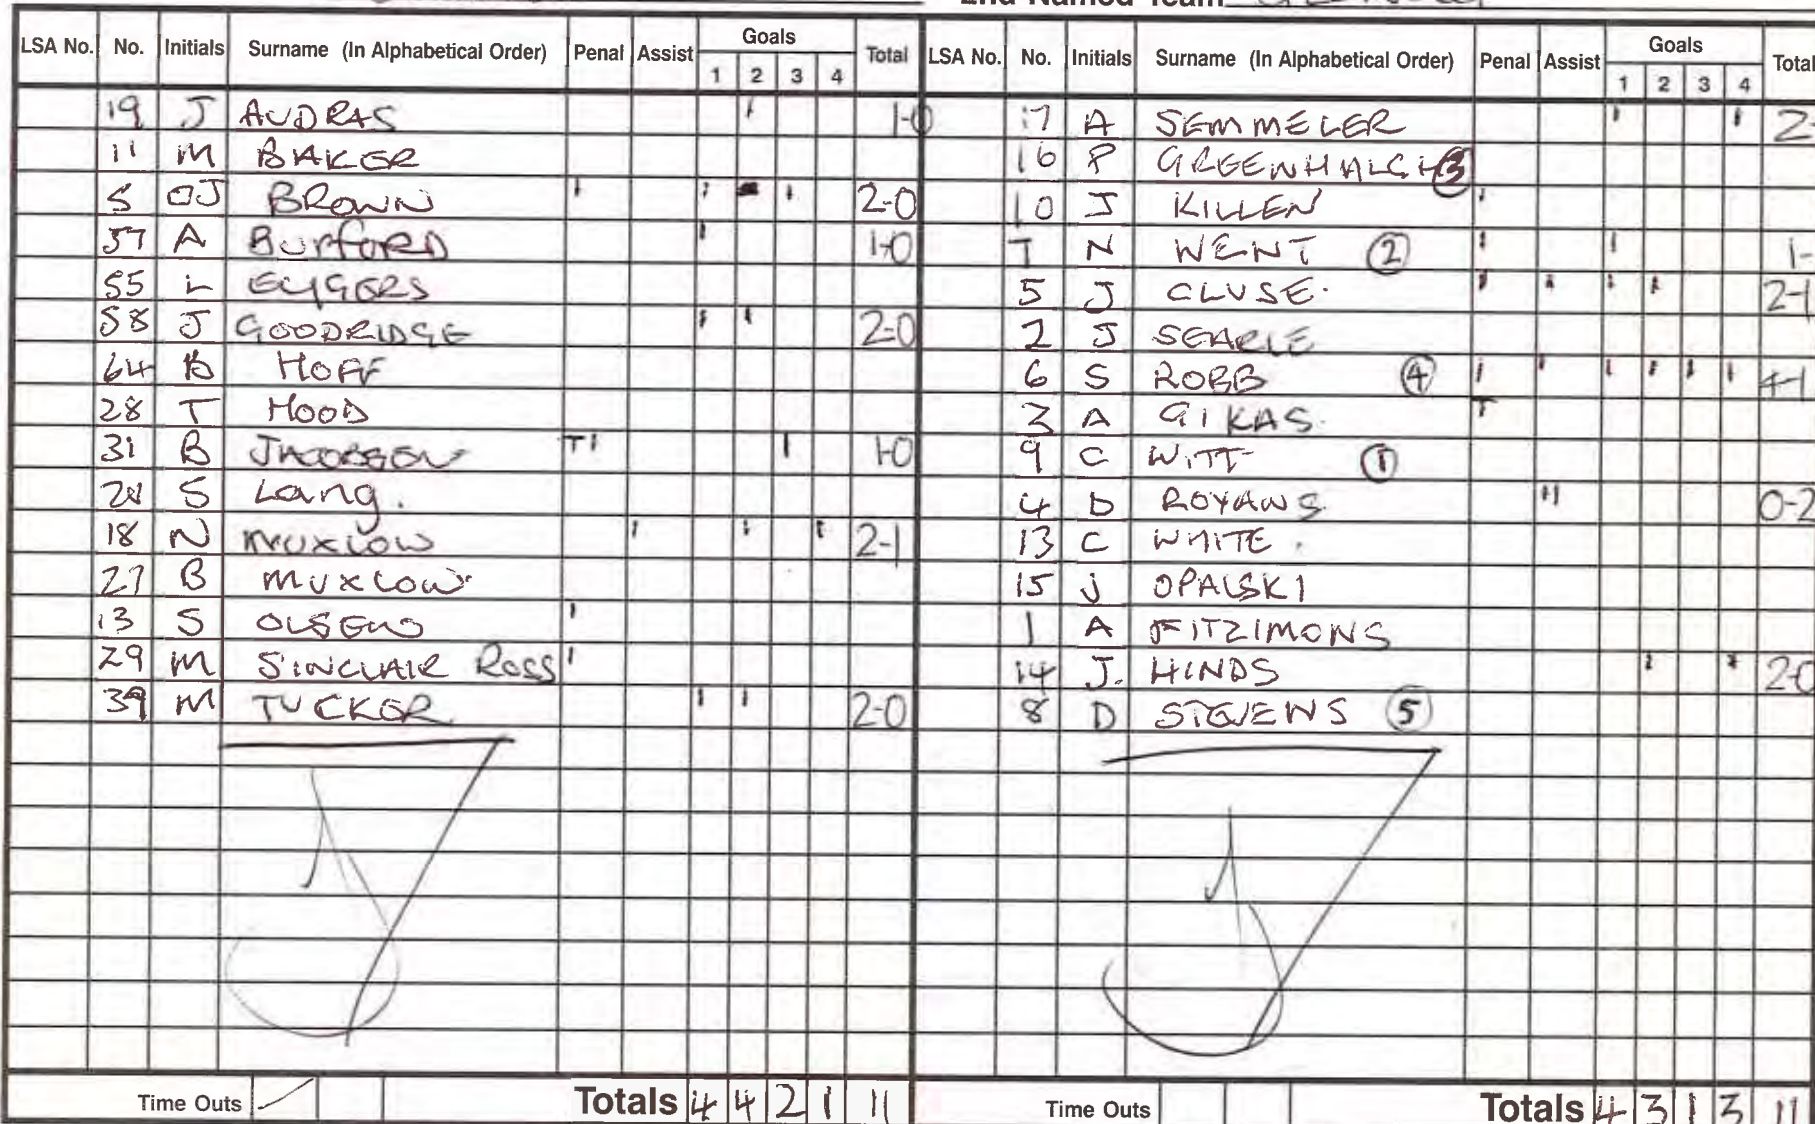 2nd Named Team
LSA No. No. Initials Surname (In Alphabetical Order) Penal Assist Goals 1 2 3 4 Total
19 J AUDRAS ' 1-0
11 M BAKER
5 OJ BROWN ' ' ' 2-0
57 A BURFORD ' 1-0
55 L EGGERS
58 J GOODRIDGE ' ' 2-0
64 B HOFF
28 T HOOD
31 B JACOBSEN T' ' 1-0
S Lang.
18 N MUXLOW ' ' ' 2-1
27 B MUXLOW
13 S OLSENS '
29 M SINCLAIR ROSS '
39 M TUCKER ' ' 2-0
Time Outs / Totals 4 4 2 1 11
LSA No. No. Initials Surname (In Alphabetical Order) Penal Assist Goals 1 2 3 4 Total
17 A SEMMELER ' ' 2-
16 P GREENHALGH ③
10 J KILLEN '
7 N WENT ② ' ' 1-
5 J CLUSE. ' ' ' ' 2-1
2 J SEARLE
6 S ROBB ④ ' ' ' ' ' ' 4-1
3 A GIKAS. T
9 C WITT ①
4 D ROYANS 11 0-2
13 C WHITE.
15 J OPALSKI
1 A FITZIMONS
14 J. HINDS ' ' 2-0
8 D STEVENS ⑤
Time Outs Totals 4 3 1 3 11